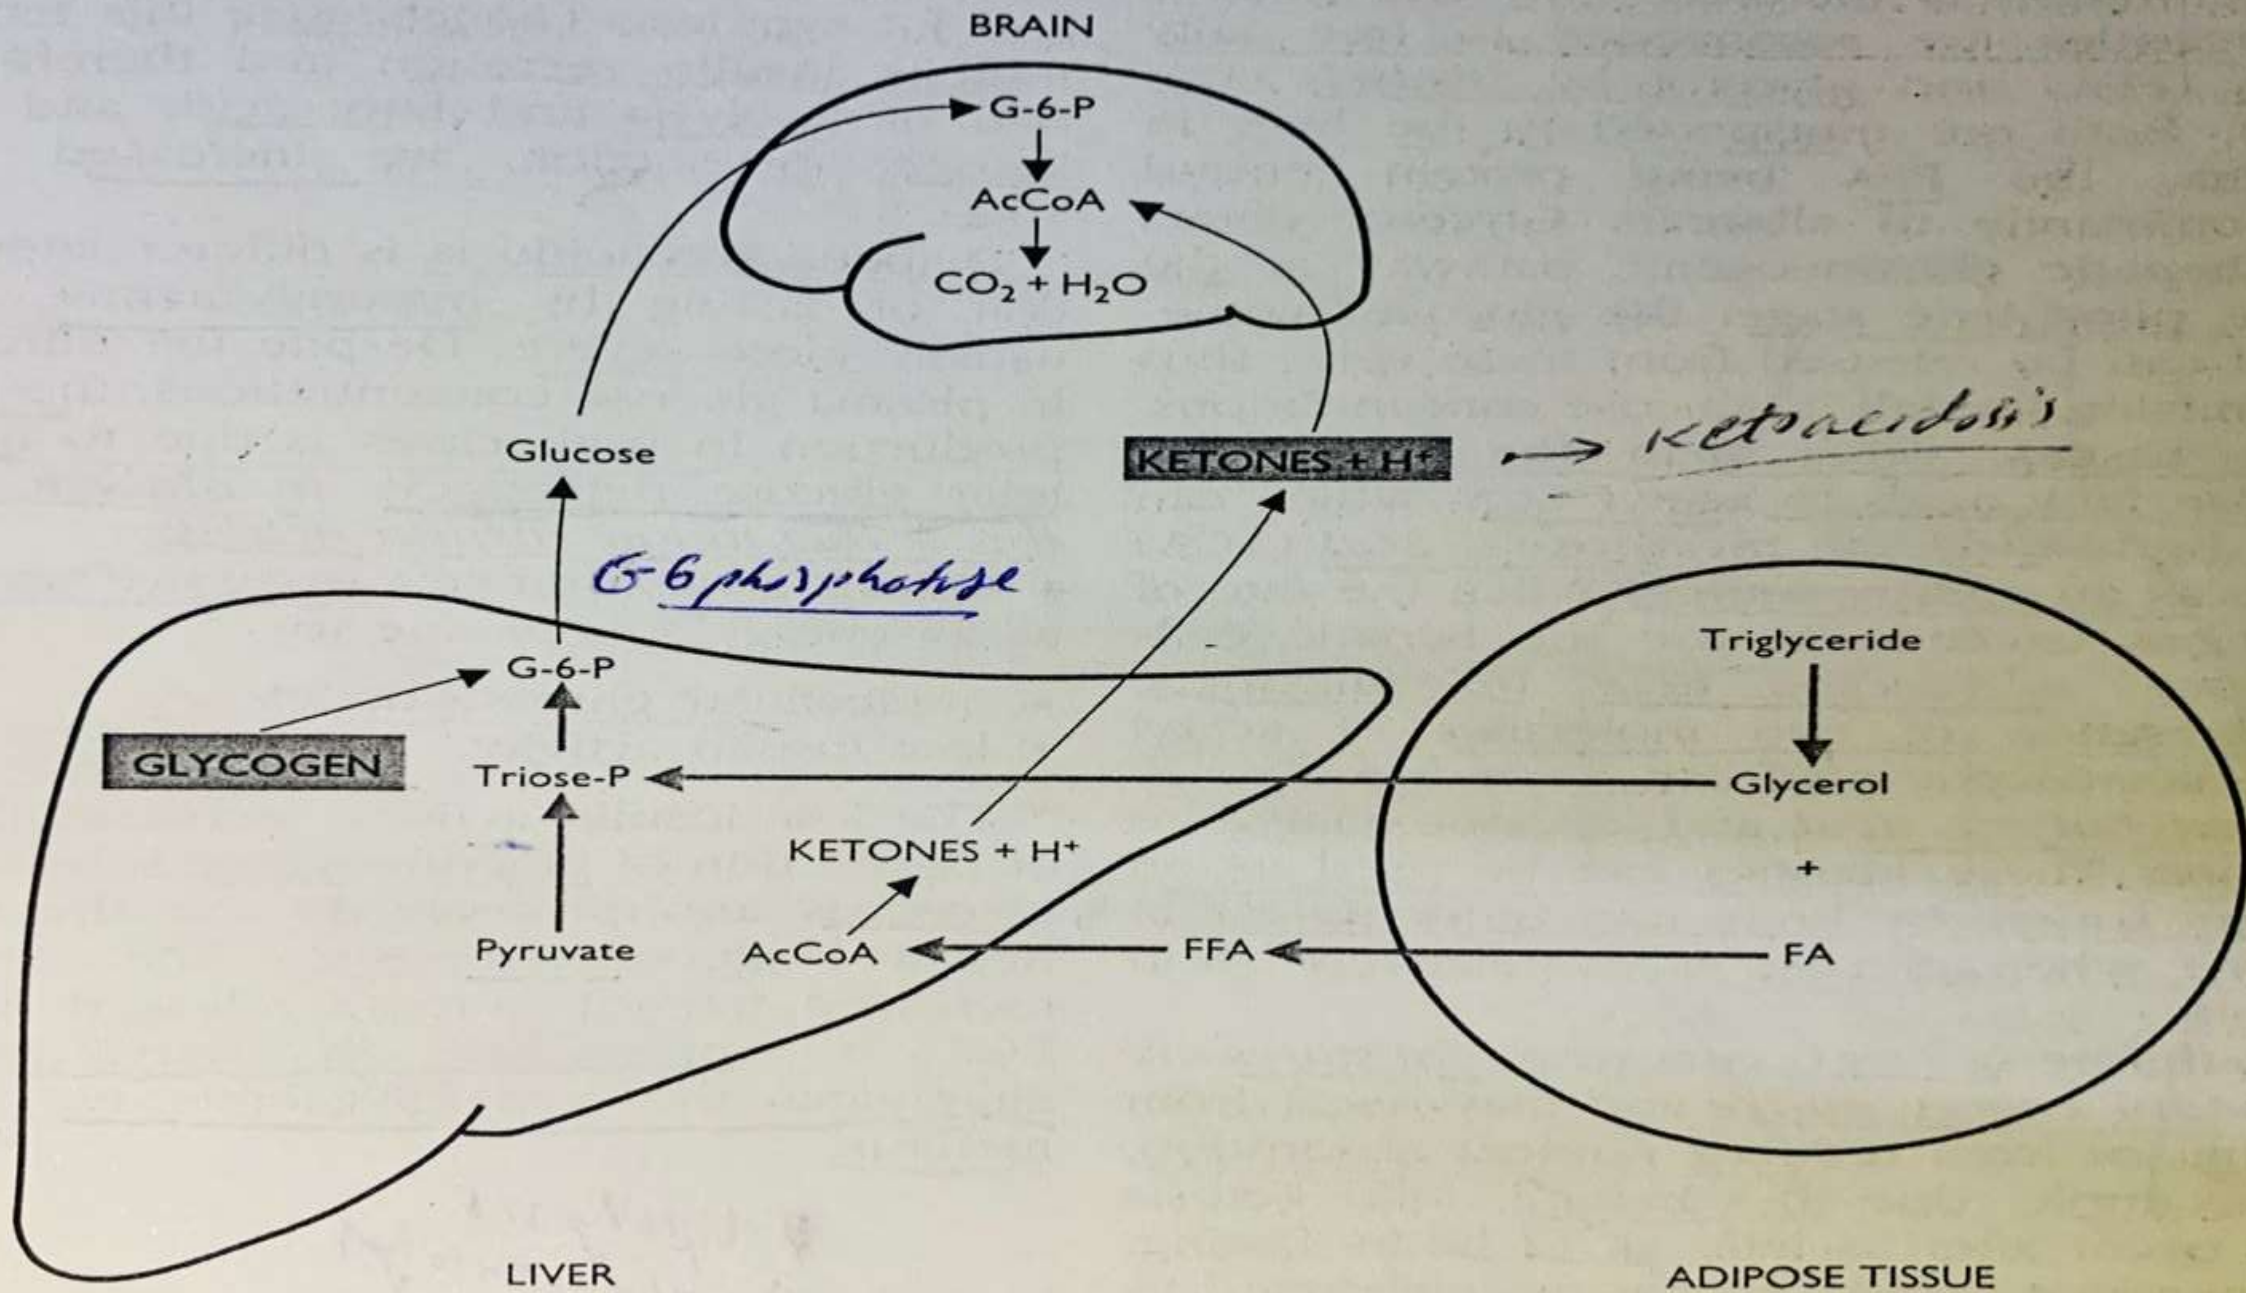 BRAIN
G-6-P
AcCoA
CO₂ + H₂O
Glucose
KETONES + H⁺ → Ketoacidosis
G-6 phosphatase
G-6-P
GLYCOGEN
Triose-P
KETONES + H⁺
Pyruvate
AcCoA
FFA
Triglyceride
Glycerol
+
FA
LIVER
ADIPOSE TISSUE